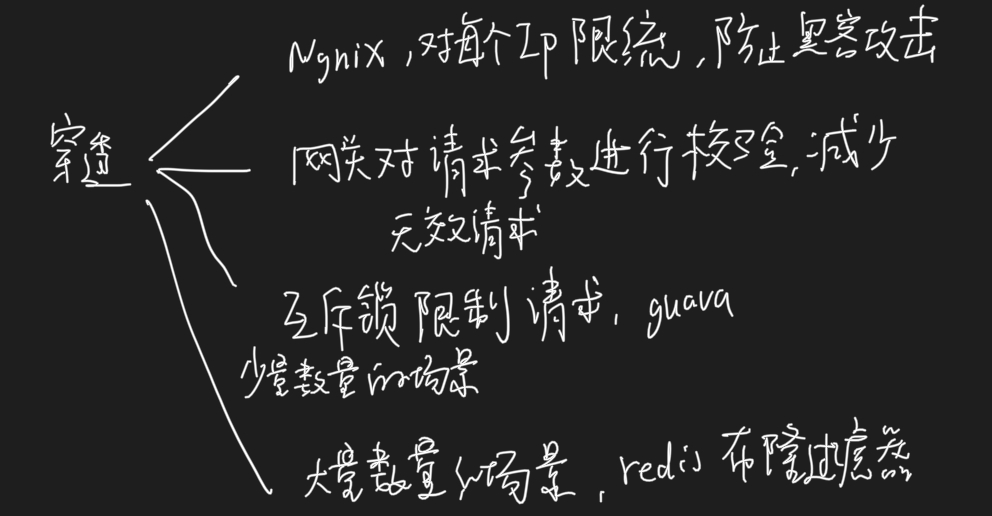 穿透
Ngnix,对每个Ip限流,防止黑客攻击
网关对请求参数进行校验,减少
无效请求
互斥锁限制请求,guava
少量数量的场景
大量数量的场景,redis布隆过滤器